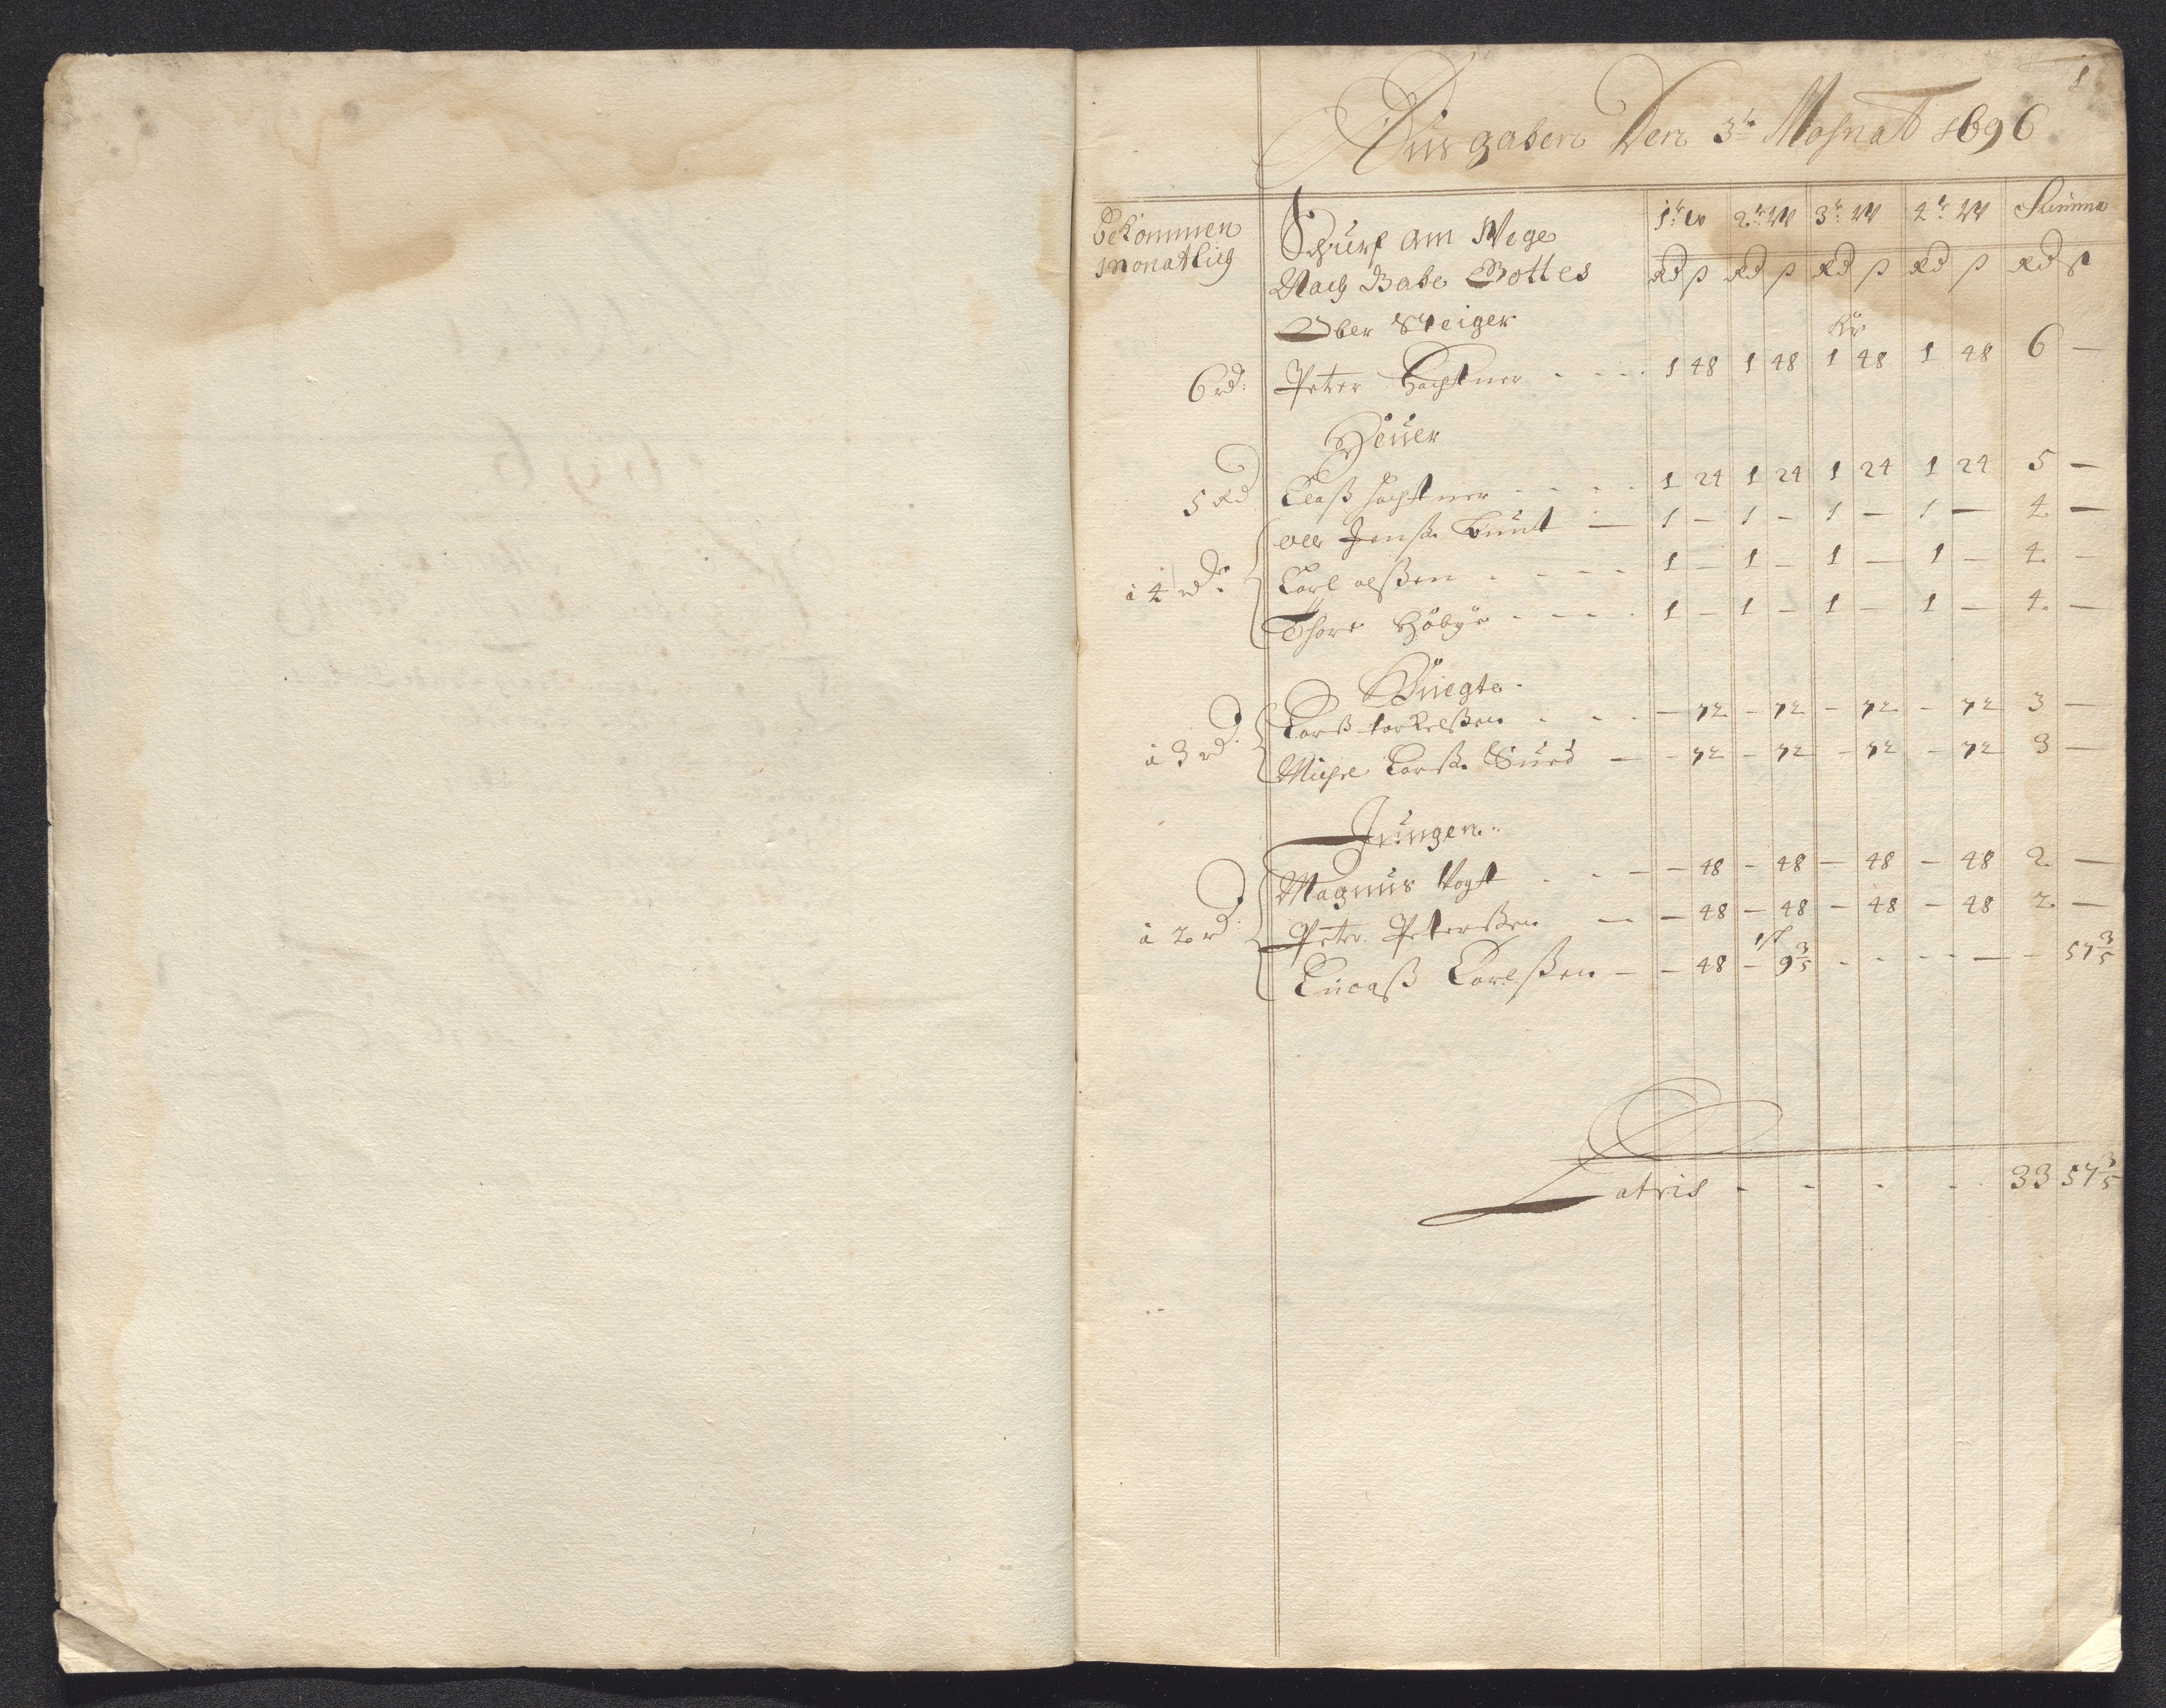 1
Ausgaben Den 3te Mohnat 1696
bekommen monatlich
Schurf am Wege 1te W 2te W 3te W 4te W Summa
Nach Gabe Gottes Rd ß Rd ß Rd ß Rd ß Rd ß
Ober Steiger
6 rd: Peter - - - 1 48 1 48 1 48 1 48 6 —
Heuer
5 Rd Claß - - - - 1 24 1 24 1 24 1 24 5 —
Ole Jenß. — 1 — 1 — 1 — 1 — 4 —
à 4 rd. Carl olßen - - - - 1 — 1 — 1 — 1 — 4 —
Thore - - - - 1 — 1 — 1 — 1 — 4 —
Knegte
Larß torkelßen - - - — 72 — 72 — 72 — 72 3 —
à 3 rd. Larß. — — 72 — 72 — 72 — 72 3 —
Jungen
Magnus Vogt - - — — 48 — 48 — 48 — 48 2 —
à 2 rd. Peter Peterßen — — 48 — 48 — 48 — 48 2 —
Lucaß Carlßen — — 48 — 9 3/5 - - - - — - 57 3/5
Latris - - - - - 33 57 3/5